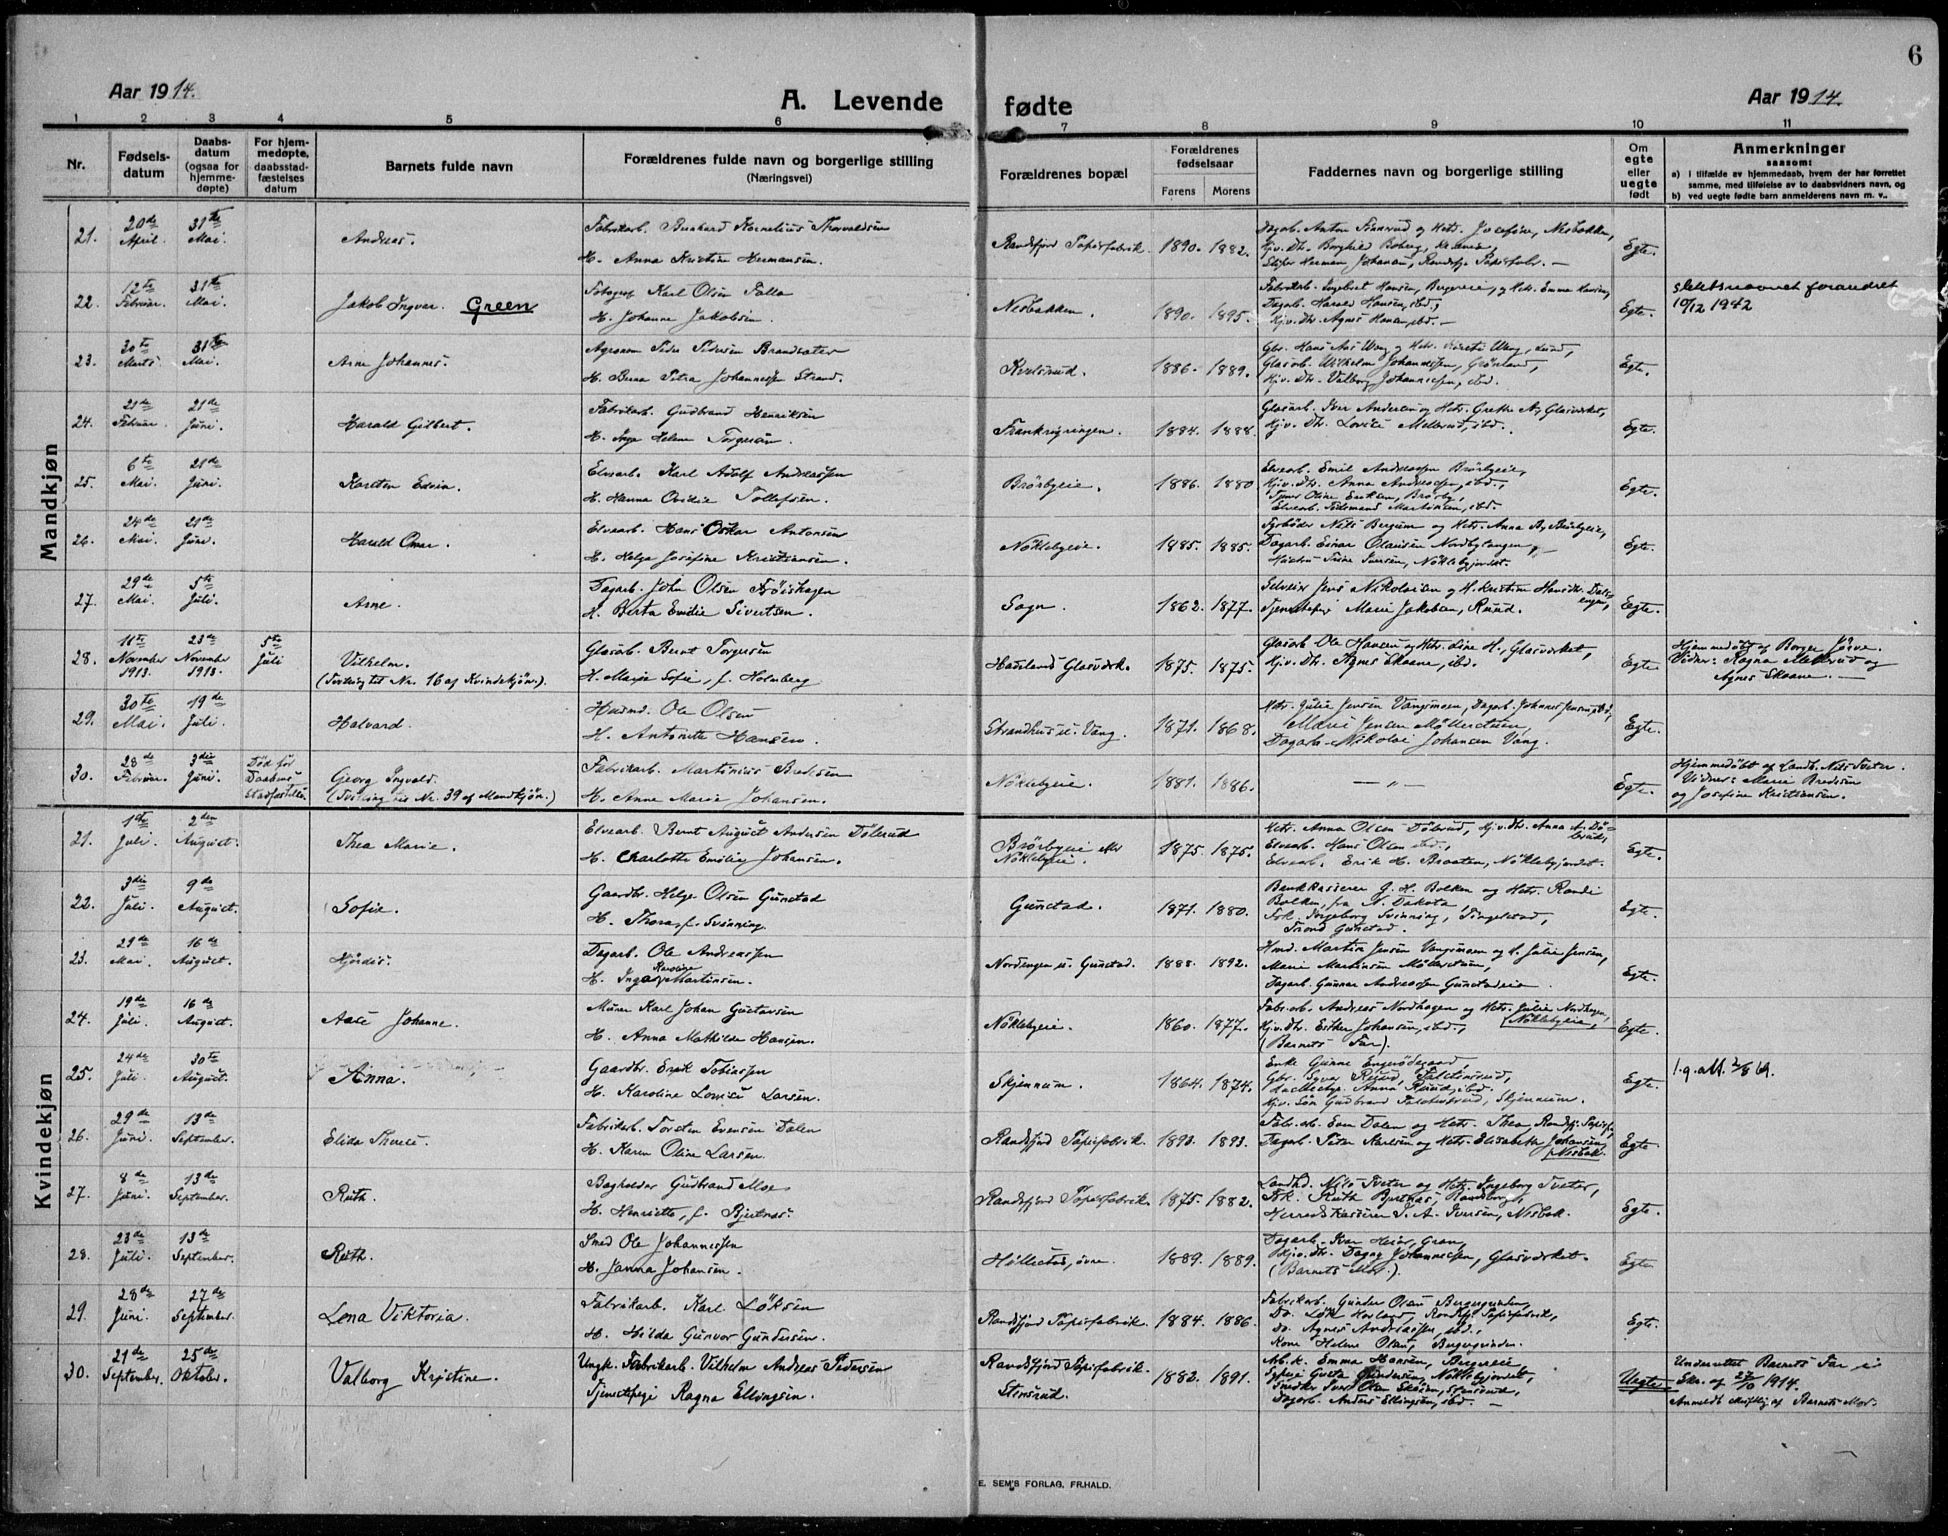 6
Aar 1914.
A. Levende fødte
Aar 1914.
1 2 3 4 5 6 7 8 9 10 11
Nr.
Fødsels-
datum
Daabs-
datum
(ogsaa for
hjemme-
døpte)
For hjem-
medøpte,
daabsstad-
fæstelses
datum
Barnets fulde navn
Forældrenes fulde navn og borgerlige stilling
(Næringsvei)
Forældrenes bopæl
Forældrenes
fødselsaar
Farens Morens
Faddernes navn og borgerlige stilling
Om
egte
eller
uegte
født
Anmerkninger
saasom:
a) i tilfælde av hjemmedaab, hvem der har forrettet
samme, med tilføielse av to daabsvidners navn, og
b) ved uegte fødte barn anmelderens navn m. v..
Mandkjøn
21. 20de April. 31te Mai. Andreas.
Fabrikarb. Bernhard Kornelius Thorvaldsen
H. Anna Kristine Hermansen.
Randsfjord Papirfabrik. 1890. 1882.
Egte.
22. 12te Februar. 31te Mai. Jakob Ingvar. Green
Fotograf Karl Olsen Falla
H. Johanne Jakobsen.
Nesbakken. 1890. 1895.
Fabrikarb. Ingebret Hansen, Bergereie, og Hstr. Emma Hansen,
Dagarb. Harald Hansen, ibd.,
Pkjv. Dtr. Agnes Hansen, ibd.
Egte.
slektsnavnet forandret
10/12 1942
23. 30te Marts 31te Mai. Arne Johannes.
Agronom Peder Pedersen Brandsæter
H. Berna Petra Johannessen Strand.
1886. 1889.
Glasarb. Wilhelm Johannessen, Grønland,
Pkjv. Dtr. Valborg Johannessen, ibd.
Egte.
24. 21de Februar. 21de Juni. Harald Gilbert.
Fabrikarb. Gudbrand Henriksen
H. Inga Helene Torgersen.
1884. 1888.
Glasarb. Iver Andersen og Hstr. Grethe A., Glasværket,
Pkjv. Dtr. Lovise Mellerud, ibd.
Egte.
25. 6te Mai. 21de Juni. Karsten Edvin.
Elvearb. Karl Adolf Andreassen
H. Hanna Ovidie Tollefsen.
Brørbyeie. 1886. 1880
Elvearb. Emil Andreassen Brørbyeie,
Pkjv. Dtr. Anna Andreassen, ibd.,
Tjener Oline Eriksen, Brørby,
Elvearb. Martinsen, ibd.
Egte.
26. 24de Mai. 21de Juni. Harald Omar.
Elvearb. Hans Oskar Antonsen
H. Helga Josefine Kristiansen.
Nøklebyeie. 1885. 1885.
Fyrbøder Nils Bergum og Hstr. Anna B., Brørbyeie,
Dagarb. Einar Olausen Nordbytangen,
Trine Iversen, Nøklebyjordet.
Egte.
27. 29de Mai. 5te Juli. Arne.
Dagarb. John Olsen Frøishagen
H. Berta Emilie Sivertsen.
Sogn. 1862. 1877.
Selveier Jens Nikolaisen og H. Kristin Hansdtr. Dalsengen,
Tjenestepige Marie Jakobsen, Ruud.
Egte.
28. 11te November 1913. 23de November 1913. 5te Juli Vilhelm.
(Tvilling til Nr. 16 af Kvindekjøn.)
Glasarb. Bernt Torgersen
H. Marie Sofie, f. Holmberg
Hadelands Glasværk. 1875. 1875.
Glasarb. Ole Hansen og Hstr. Line H., Glasværket,
Pkjv. Dtr. Agnes Skaane, ibd.
Egte.
Hjemmedøbt af Borger Jørve.
Vidner: Ragna Mellerud og
Agnes Skaane.
29. 30te Mai. 19de Juli. Halvard.
Husmd. Ole Olsen
H. Antonette Hansen.
Strandhus u. Vang. 1871. 1868.
Hstr. Julie Jensen Vangsmoen, Dagarb. Johannes Jensen, ibd,
Marie Jensen Møllerstuen,
Dagarb. Nikolai Johansen Vang.
Egte.
30. 28de Februar. 3die Juni. Død før Daabens Stadfæstelse
Georg Ingvald.
(Tvilling til Nr. 39 af Mandkjøn.)
Fabrikarb. Martinius Bredesen
H. Anne Marie Johansen.
Nøklebyeie. 1881. 1886.
— „ —
Egte.
Hjemmedøbt af Landh. Nils Tveter.
Vidner: Marie Bredesen
og Josefine Kristiansen.
Kvindekjøn
21. 1ste Juli. 2den August. Thea Marie.
Elvearb. Bernt August Andersen Dølerud
H. Charlotte Emilie Johansen.
Brørbyeie eller
Nøklebyeie. 1875. 1875.
Hstr. Anna Olsen Dølerud, Pkjv. Dtr. Anna A. Dølerud,
Elvearb. Hans Olsen ibd.,
Elvearb. Erik H. Braaten, Nøklebyjordet.
Egte.
22. 3die Juli. 9de August. Sofie.
Gaardbr. Helge Olsen Gunstad
H. Thora, f. Svinning.
Gunstad. 1871. 1880.
Bankkasserer G. H. Bolken og Hstr. Randi
Bolken, fra N. Dakota
Frk. Ingeborg Svinning, Tingelstad,
Trond Gunstad.
Egte.
23. 29de Mai. 16de August. Hjørdis.
Dagarb. Ole Andreassen
H. Inga Karoline Martinsen.
Nordengen u. Gunstad. 1888. 1892.
Hmd. Martin Jensen Vangsmoen og H. Julie Jensen,
Marie Martinsen Møllerstuen,
Dagarb. Gunnar Andreassen Gunstadeie
Egte.
24. 19de Juli. 16de August. Aase Johanne.
Murer Karl Johan Gustavsen
H. Anna Mathilde Hansen.
Nøklebyeie. 1860. 1877.
Fabr.arb. Andreas Nordhagen og Hstr. Julie Nordhagen, Nøklebyeie,
Pkjv. Dtr. Esther Johansen, ibd.,
(Barnets Far).
Egte.
25. 24de Juli. 30te August. Anna.
Gaardbr. Erik Tobiassen
H. Karoline Lovise Larsen.
Skjennum. 1864. 1874.
Enke Gunne Engnødegaard,
Anna Ruud, ibd.
Pkjv. Søn Gudbrand Falchesrud, Skjennum.
Egte.
1.g. att. 2/8 61.
26. 29de Juni. 13de September. Elida Therese.
Fabrikarb. Torsten Evensen Dalen
H. Karen Oline Larsen.
Randsfjord Papirfabrik. 1893. 1893.
Fabr.arb. Even Dalen og Hstr. Thea Randsfj. Papirf.,
Dagarb. Peter Karlsen og Hstr. Elisabeth Johansen, Nesbak.
Egte.
27. 8de Juni. 13de September. Ruth.
Bogholder Gudbrand Moe
H. Henriette, f. Bjertnæs.
Randsfjord Papirfabrik. 1875. 1882.
Landhd. Nils Tveter og Hstr. Ingeborg Tveter,
Frk. Ruth Bjertnæs, Randsborg,
Herredskasserer I. A. Iversen, Nesbak.
Egte.
28. 23de Juli. 13de September. Ruth.
Smed Ole Johannessen
H. Janna Johansen.
1889. 1889.
Dagarb. Ivar Heier, Gran,
Pkjv. Dtr. Dagny Johannessen, Glasværket.
(Barnets Mor.).
Egte.
29. 28de Juni. 27de September. Lena Viktoria.
Fabrikarb. Karl Løksen
H. Hilda Gunvor Gundersen.
Randsfjord Papirfabrik. 1884. 1886.
Fabrikarb. Gunder Olsen Bergergrinden,
Do. Agnes Andreassen, ibd.,
Kone Helene Olsen, Bergergrinden.
Egte.
30. 21de September. 25de Oktober. Valborg Kristine.
Ungk. Fabrikarb. Vilhelm Andreas Pedersen
Tjenestepige Ragna Ellingsen.
Randsfjord Papirfabrik.
Stensrud. 1882. 1891.
Arb.k. Emma Hansen, Bergereie,
Sypige Gusta Gundersen, Nøklebyjordet,
Snedker Iver Olsen Skaasen, Stensrud,
Dagarb. Anders Ellingsen, ibd.
Uegte.
Underrettet Barnets Far i
Skr. af 27/10 1914.
Anmeldt skriftlig af Barnets Mor.
E. SEM'S FORLAG, FR.HALD.